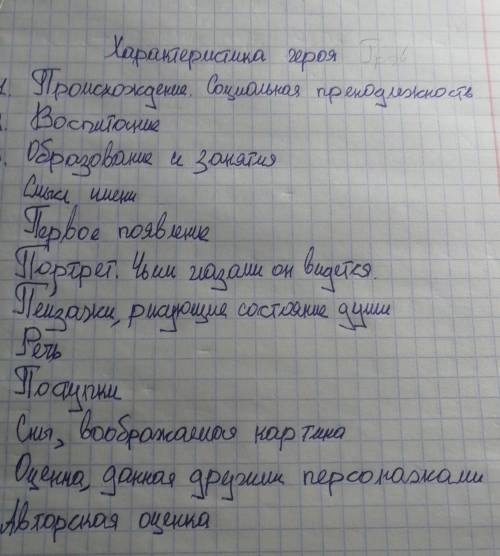 Характеристика героя
1. Происхождение. Социальная преподлежность
Воспитание
Образование и занятия
Смысл имени
Первое появление
Портрет. Чьими глазами он видется.
Пейзажи, рисующие состояние души
Речь
Поступки
Сны, воображаемая картина
Оценка, данная другими персонажами
Авторская оценка